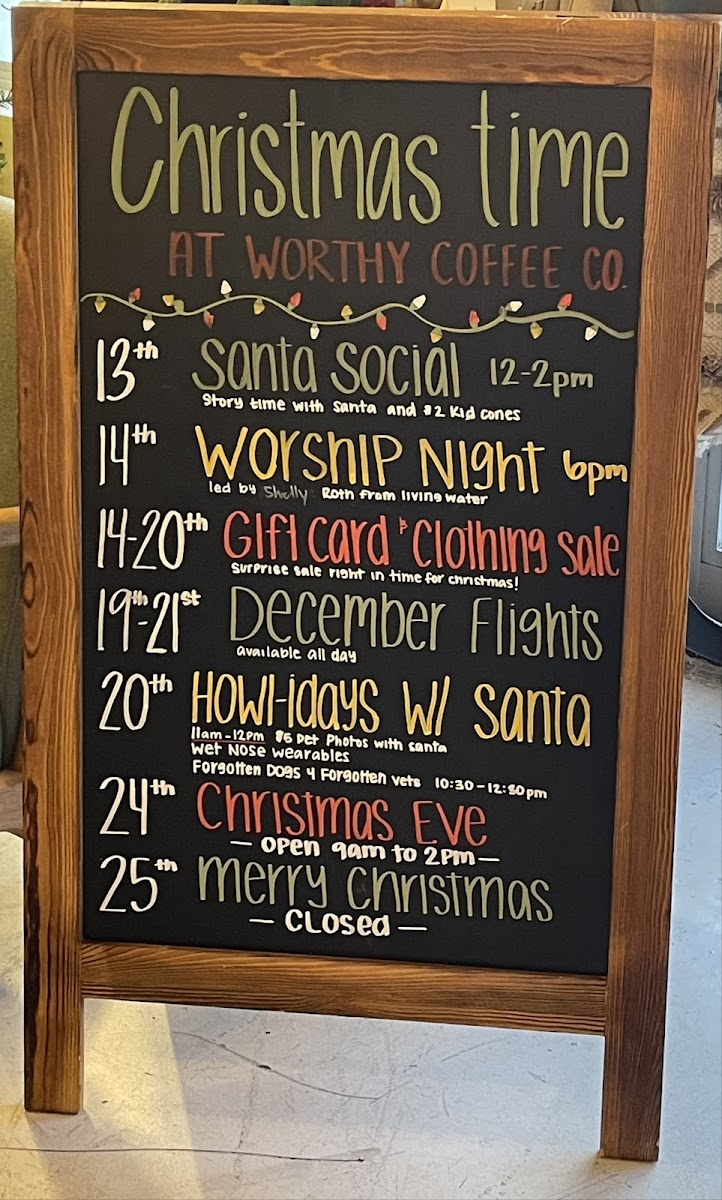 Christmas time
AT WORTHY COFFEE CO.
13th Santa Social 12-2pm
Story time with Santa and $2 Kid cones
14th Worship Night 6pm
led by Shelly Roth from living water
14-20th Gift Card & Clothing Sale
Surprise sale right in time for christmas!
19th-21st December Flights
available all day
20th Howl-idays w/ Santa
11am-12pm $5 Pet Photos with santa
Wet Nose wearables
Forgotten Dogs 4 Forgotten Vets 10:30-12:30pm
24th Christmas Eve
— open 9am to 2pm —
25th merry christmas
— CLOSED —